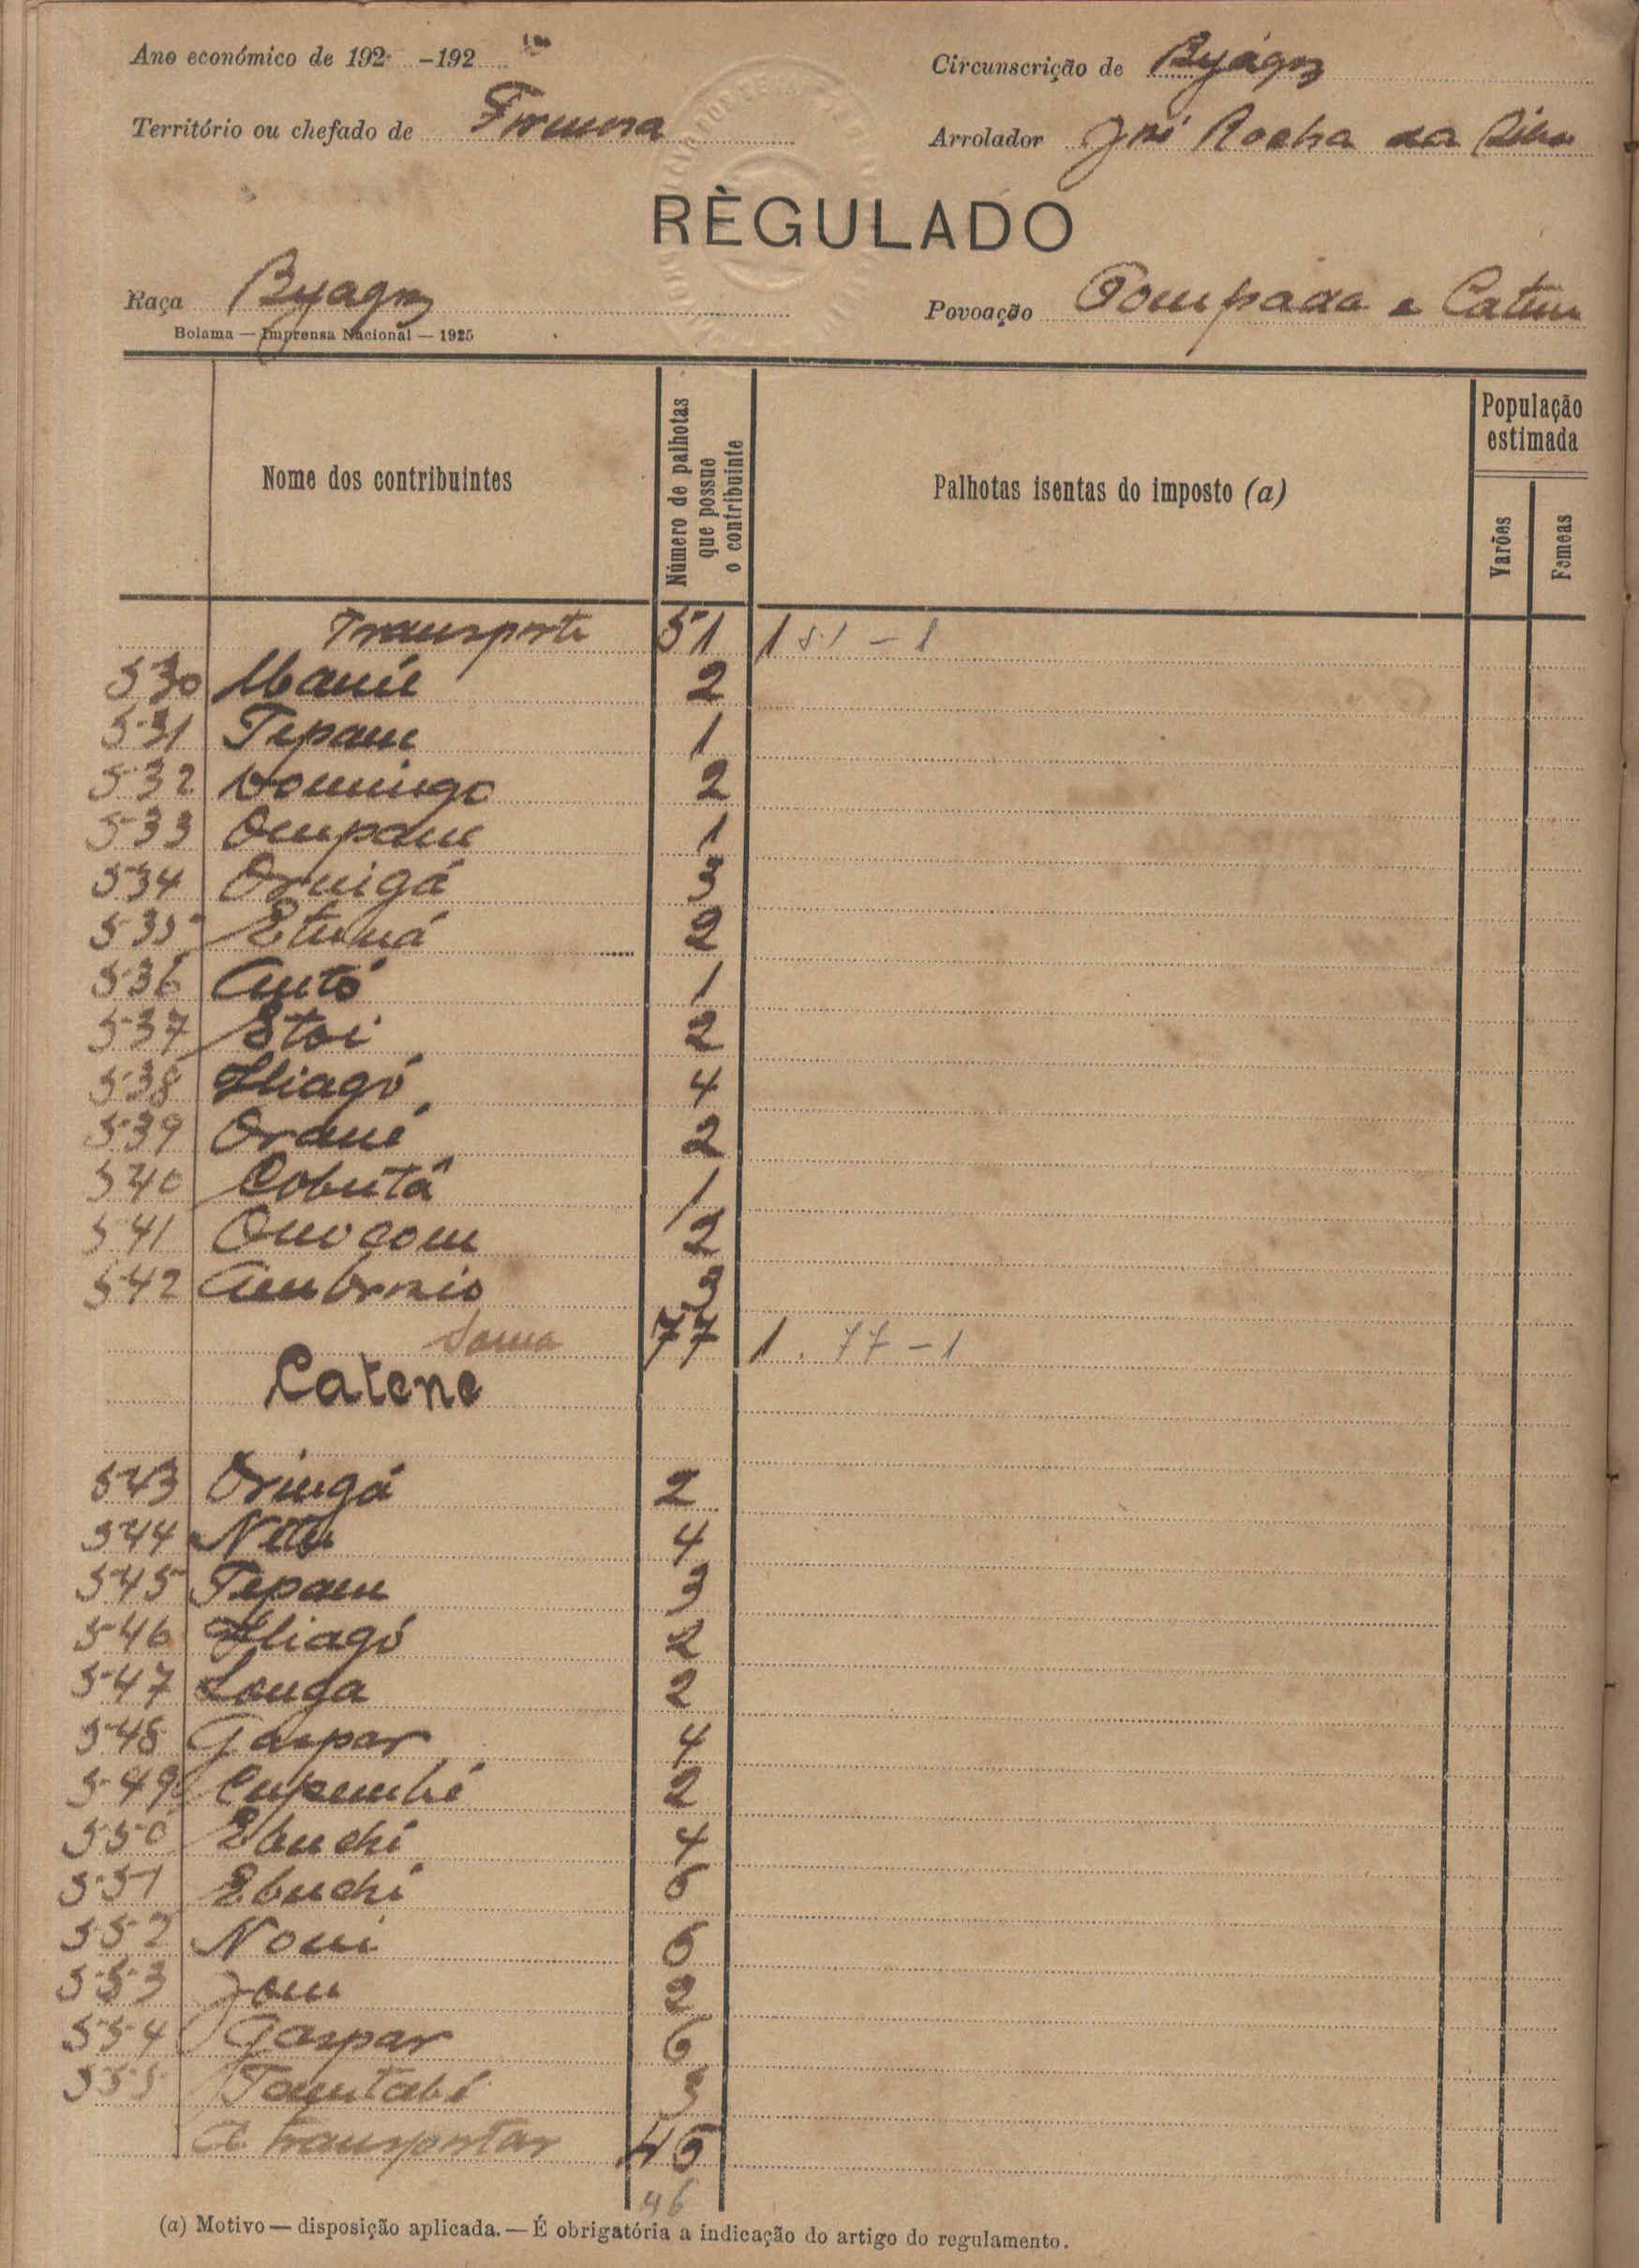 Ano económico de 192 -192
Circunscrição de Byágoz
Território ou chefado de Formosa
Arrolador José Rocha da Silva
RÈGULADO
Raça Byagoz
Povoação Pompada e Catene
Bolama — Imprensa Nacional — 1925
Nome dos contribuintes
Número de palhotas que possue o contribuinte
Palhotas isentas do imposto (a)
População estimada
Varões
Femeas
Transporte 51 1 51 - 1
530 Manié 2
531 Tepam 1
532 Domingo 2
533 Ompam 1
534 Oruigá 3
535 Etuná 2
536 Antó 1
537 Etoi 2
538 Iliagó 4
539 Orané 2
540 Cobutâ 1
541 Onocom 2
542 Ambrozio 3
Soma 77 1. 77 - 1
Catene
543 Oringá 2
544 4
545 Tepam 3
546 Iliagó 2
547 Louga 2
548 Gaspar 4
549 Cupumbé 2
550 Ebuchi 4
551 Ebuchi 5
552 Noui 6
553 Jom 2
554 Gaspar 6
555 3
A transportar 45
46
(a) Motivo — disposição aplicada. — É obrigatória a indicação do artigo do regulamento.